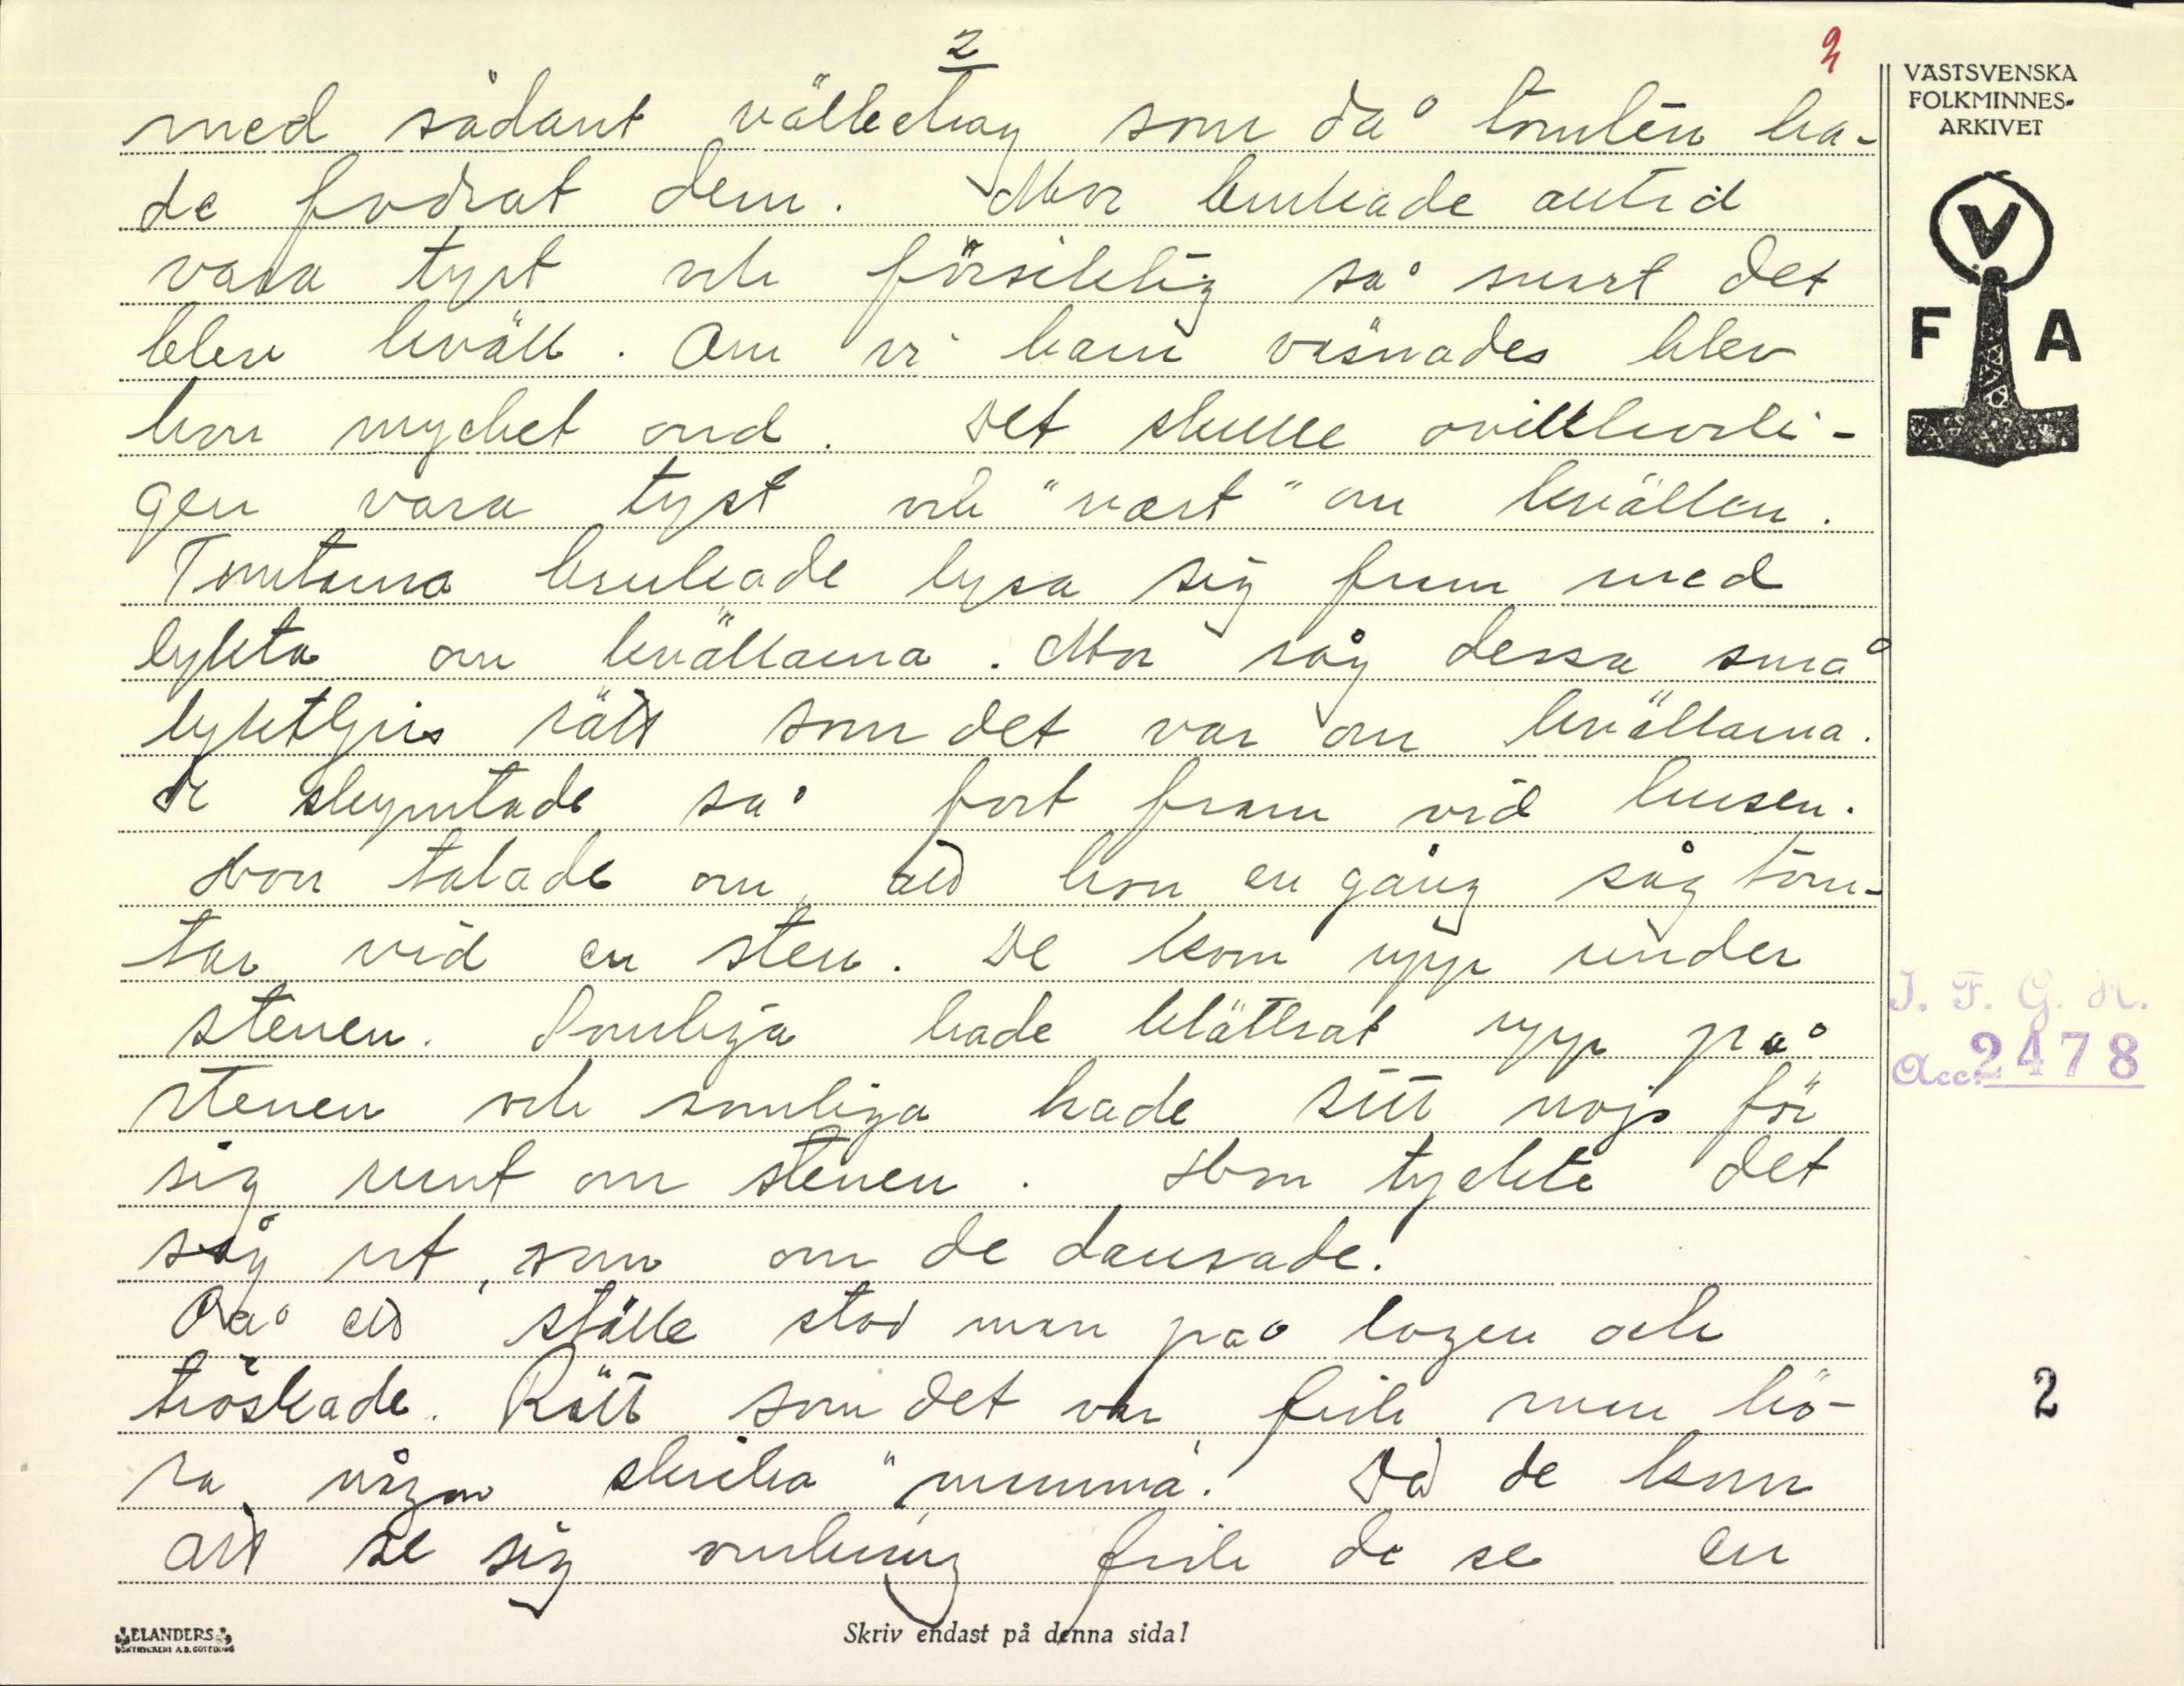 2
2
VÄSTSVENSKA
FOLKMINNES-
ARKIVET
V
F A
med sådant välbehag som då tomten ha-
de fodrat dem. Mor brukade alltid
vara tyst och försiktig så snart det
blev kväll. Om vi barn väsnades blev
hon mycket ond. Det skulle ovillkorli-
gen vara tyst och "vart" om kvällen.
Tomtarna brukade lysa sig fram med
lykta om kvällarna. Mor såg dessa små
lyktljus rätt som det var om kvällarna.
De skymtade så fort fram vid husen.
Hon talade om, att hon en gång såg tom-
tar vid en sten. De kom upp under
stenen. Somliga hade klättrat upp på
stenen och somliga hade sitt nojs för
sig runt om stenen. Hon tyckte det
såg ut, som om de dansade.
På ett ställe stod man på logen och
tröskade. Rätt som det var, fick man hö-
ra någon skrika "mumma". Då de kom
att se sig omkring fick de se en
I. F. G. H.
Acc. 2478
2
ELANDERS
BOKTRYCKERI A.B. GÖTEBORG
Skriv endast på denna sida!